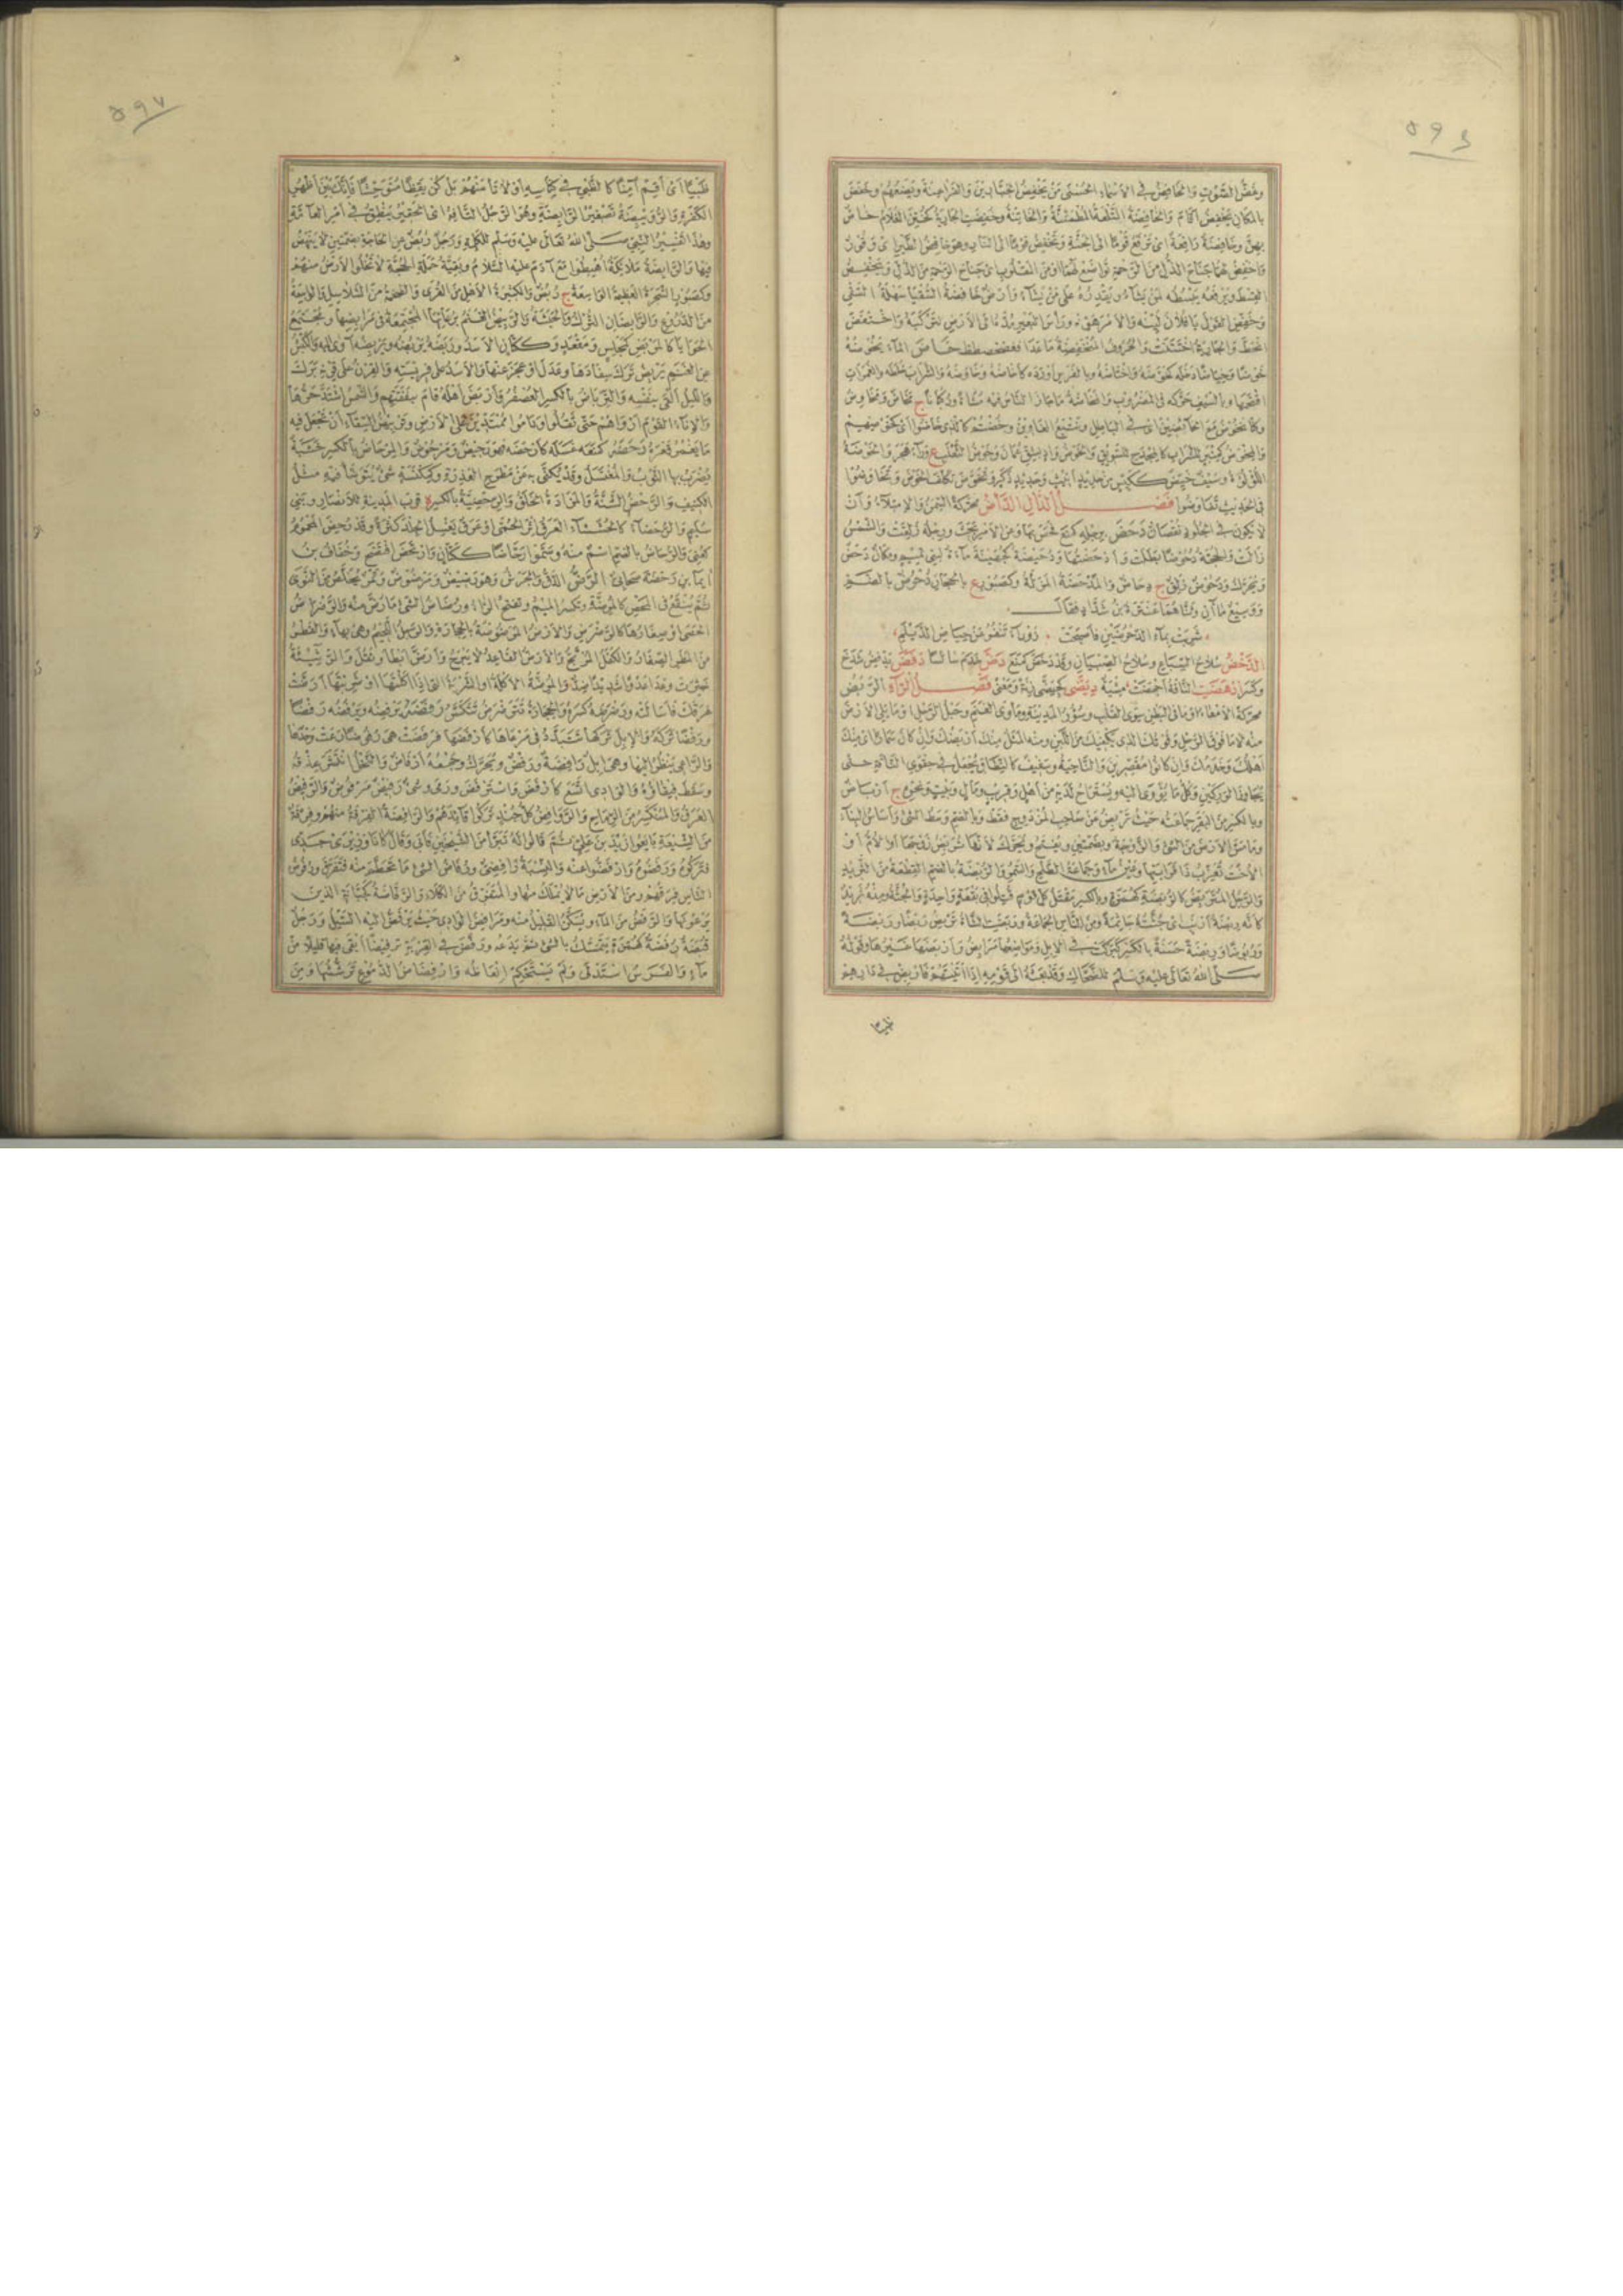 وغض الصوت والخافض في الاسماء الحسنى من يخفض الجبارين والفراعنة ويضعهم وخفض
بالمكان يخفض اقام والخافضة التلعة المطمئنة والخاتنة وخفضت الجارية كختن الغلام خاص
بهن وخافضة رافعة اى ترفع قوما الى الجنة وتخفض قوما الى النار وهو خافض الطير اى وقور
واخفض لهما جناح الذل من الرحمة تواضع لهما او من المقلوب اى جناح الرحمة من الذل ويخفض
القسط ويرفعه يبسطه لمن يشاء ويقدره على من يشاء وارض خافضة السقيا سهلة السقى
وخفض القول يا فلان لينه والامر هونه وراس البعير مده الى الارض لتركبه واختفض
انحط والجارية اختتنت والحروف المنخفضة ما عدا فغضصضطظ خاض الماء يخوضه
خوضا وخياضا دخله كخوضه واختاضه وبالفرس اورده كاخاضه وخاوضه والشراب خلطه والغمرات
اقتحمها وبالسيف حركه فى المضروب والمخاضة ما جاز الناس فيه مشاة وركبانا ج مخاض ومخاوض
وكنا نخوض مع الخائضين اى فى الباطل ونتبع الغاوين وخضتم كالذى خاضوا اى كخوضهم
والمخوض كمنبر للشراب كالمجدح للسويق والخوض واد بشق عمان وخوض الثعلب ع وراء هجر والخوضة
اللؤلؤة وسيف خيض ككيس من حديد انيث وحديد ذكير وتخوض تكلف الخوض وتخاوضوا
فى الحديث تفاوضوا فصل الدال الدأض محركة السمن والامتلاء وان
لا يكون فى الجلود نقصان دحض برجله كمنع فحص بها وعن الامر بحث ورجله زلقت والشمس
زالت والحجة دحوضا بطلت وادحضتها ودحيضة كجهينة ماءة لبنى تميم ومكان دحض
ويحرك ودحوض زلق ج دحاض والمدحضة المزلة وكصبور ع بالحجاز دحرض بالضم
ووسيع ماآن وثناهما عنترة بن شداد فقال
شربت بماء الدحرضين فاصبحت زوراء تنفر عن حياض الديلم
الدخض سلاح السباع وسلاح الصبيان وقد دخض كمنع دض خدم سائسا دفض يدفض شدخ
وكسر ادهضت الناقة اجهضت مشية ديضى كجيضى زنة ومعنى فصل الراء الربض
محركة الامعاء او ما فى البطن سوى القلب وسور المدينة وماوى الغنم وحبل الرحل او ما يلى الارض
منه لا ما فوق الرحل وقوتك الذى يكفيك من اللبن ومنه المثل منك ربضك وان كان سمارا اى منك
اهلك وخدمك وان كانوا مقصرين والناحية وسفيف كالنطاق يجعل فى حقوى الناقة حتى
يجاوز الوركين وكل ما يؤوى اليه ويستراح لديه من اهل وقريب ومال وبيت ونحوه ج ارباض
وبالكسر من البقر جماعته حيث تربض عن صاحب المزدوج فقط وبالضم وسط الشئ واساس البناء
وما مس الارض من الشئ والزوجة وبضمتين ويفتح ويحرك لانها تربض زوجها او الام او
الاخت تعزب ذا قرابتها وعين ماء وجماعة الطلح والسمر والربضة بالضم القطعة من الثريد
والرجل المتربض كالربضة كهمزة وبالكسر مقتل كل قوم قتلوا فى بقعة واحدة والجثة ومنه ثريد
كانه ربضة ارنب اى جثته جاثمة ومن الناس الجماعة وربضت الشاة تربض ربضا وربضة
وربوضا وربضة حسنة بالكسر كبركت فى الابل ومواضعها مرابض واربضها غيرها وقوله
صلى الله تعالى عليه وسلم للضحاك وقد بعثه الى قومه اذا اتيتهم فاربض فى دارهم
ظبيا
ظبيا اى اقم آمنا كالظبى فى كناسه او لا تامنهم بل كن يقظا متوحشا فانك بين اظهر
الكفرة والرويبضة تصغير الرابضة وهو الرجل التافه اى الحقير ينطق فى امر العامة
وهذا تفسير النبى صلى الله تعالى عليه وسلم للكلمة ورجل ربض عن الحاجة بضمتين لا ينهض
فيها والرابضة ملائكة اهبطوا مع آدم عليه السلام وبقية حملة الحجة لا تخلو الارض منهم
وكصبور الشجرة العظيمة الواسعة ج ربض والكثيرة الاهل من القرى والضخمة من السلاسل والواسعة
من الدروع والرابضان الترك والحبشة والربيض الغنم برعاتها المجتمعة فى مرابضها ومجتمع
الحوايا كالمربض كمجلس ومقعد وككتان الاسد وربضه يربضه ويربضه آوى اليه والكبش
عن الغنم يربض ترك سفادها وعدل او عجز عنها والاسد على فريسته والقرن على قرنه برك
والليل القى بنفسه والرباض بالكسر العصفر واربض اهله قام بنفقتهم والشمس اشتد حرها
والاناء القوم ارواهم حتى ثقلوا وناموا ممتدين على الارض وتربيض السقاء ان تجعل فيه
ما يغمر قعره رحضه كمنعه غسله كارحضه فهو رحيض ومرحوض والمرحاض بالكسر خشبة
يضرب بها الثوب والمغتسل وقد يكنى به عن مطرح العذرة وكمكنسة شئ يتوضأ فيه مثل
الكنيف والرحض الشنة والمزادة الخلق والرحضية بالكسر ة قرب المدينة للانصار وبنى
سليم والرحضاء كالخششاء العرق اثر الحمى او عرق يغسل الجلد كثرة وقد رحض المحموم
كعنى والرحاض بالضم اسم منه وسموا رحاضا ككتان وارتحض افتضح وخفاف بن
ايماء بن رحضة صحابى الرض الدق والجرش وهو رضيض ومرضوض وتمر يخلص من النوى
ثم ينقع فى المخض كالمرضة وتكسر الميم وتفتح الراء ورضاض الشئ ما رض منه والرضراض
الحصى او صغارها كالرضرض والارض المرضوضة بالحجارة والرجل اللحيم وهى بهاء والقطر
من المطر الصغار والكفل المرتج والارض القاعد لا يبرح وارض ابطا وثقل والرثيئة
خثرت وعدا عدوا شديدا ضد والمرضة الاكلة او الشربة التى اذا اكلتها او شربتها ارضت
عرقك فاسالته ورضرضه كسره والحجارة تترضرض تتكسر رفضه يرفضه ويرفضه رفضا
ورفضا تركه والابل تركها تتبدد فى مرعاها كارفضها فرفضت هى رفوضا رعت وحدها
والراعى ينظر اليها وهى ابل رافضة ورفض ويحرك وجمعه ارفاض والنخل انتشر عذقه
وسقط قيقاؤه والوادى اتسع كارفض واسترفض ورمى وشئ رفيض مرفوض والرفيض
العرق والمتكسر من الرماح والروافض كل جند تركوا قائدهم والرافضة الفرقة منهم وفرقة
من الشيعة بايعوا زيد بن على ثم قالوا له تبرا من الشيخين فابى وقال كانا وزيرى جدى
فتركوه ورفضوه وارفضوا عنه والنسبة رافضى ورفاض الشئ ما تحطم منه فتفرق ورفوض
الناس فرقهم ومن الارض ما لا يملك منها والمتفرق من الكلا والرفاضة كجبانة الذين
يرعونها والرفض من الماء ويسكن القليل منه ومرافض الوادى حيث يرفض اليه السيل ورجل
قبضة رفضة كهمزة يتمسك بالشئ ثم يدعه ورفض فى القربة ترفيضا ابقى فيها قليلا من
ماء والفرس استدلى ولم يستحكم انعاظه وارفضاض الدموع ترششها ومن